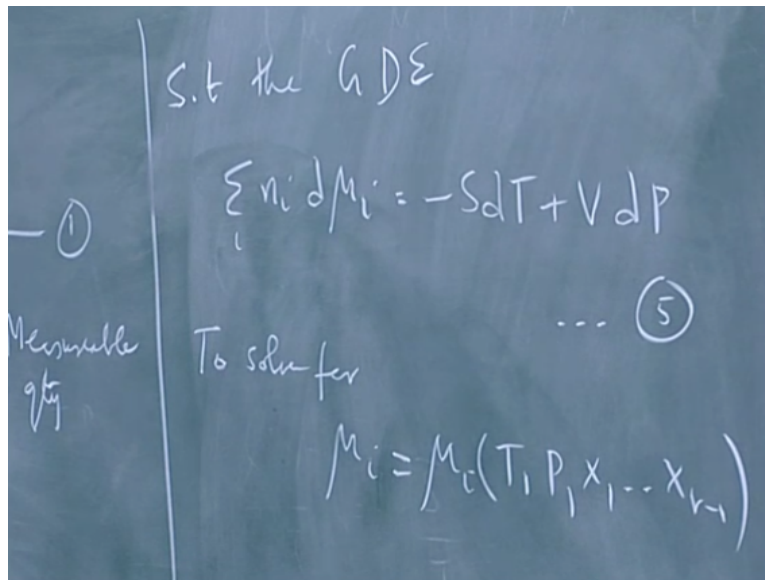 — ①
Measurable
qty
S.t the GDE
∑ᵢ nᵢ dμᵢ = -SdT + VdP
... ⑤
To solve for
μᵢ = μᵢ(T, P, x₁... xᵣ₋₁)